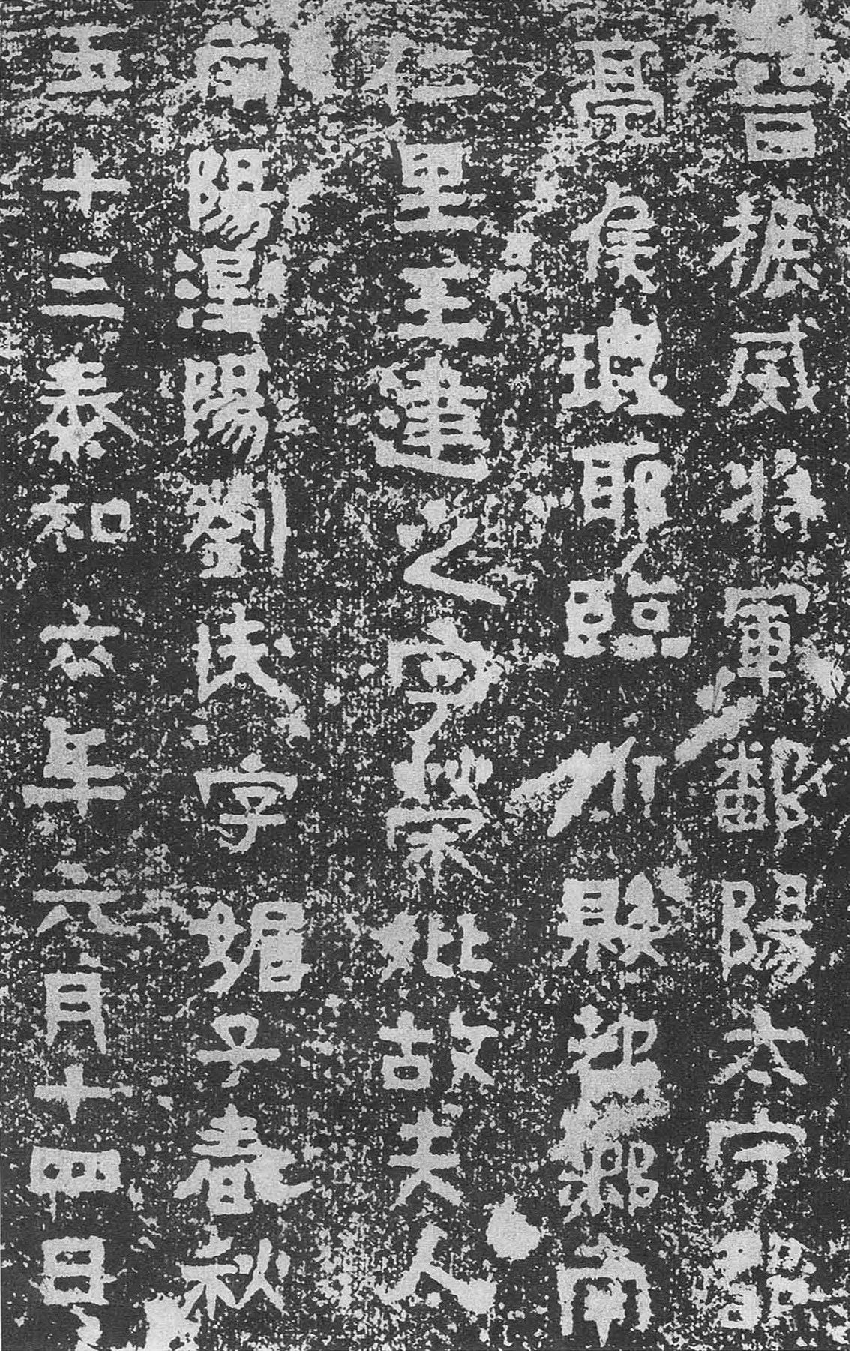 晉振威將軍鄱陽太守都
亭侯琅耶臨沂縣都鄉南
仁里王建之字榮妣故夫人
南陽涅陽劉氏字媚子春秋
五十三泰和六年六月十四日